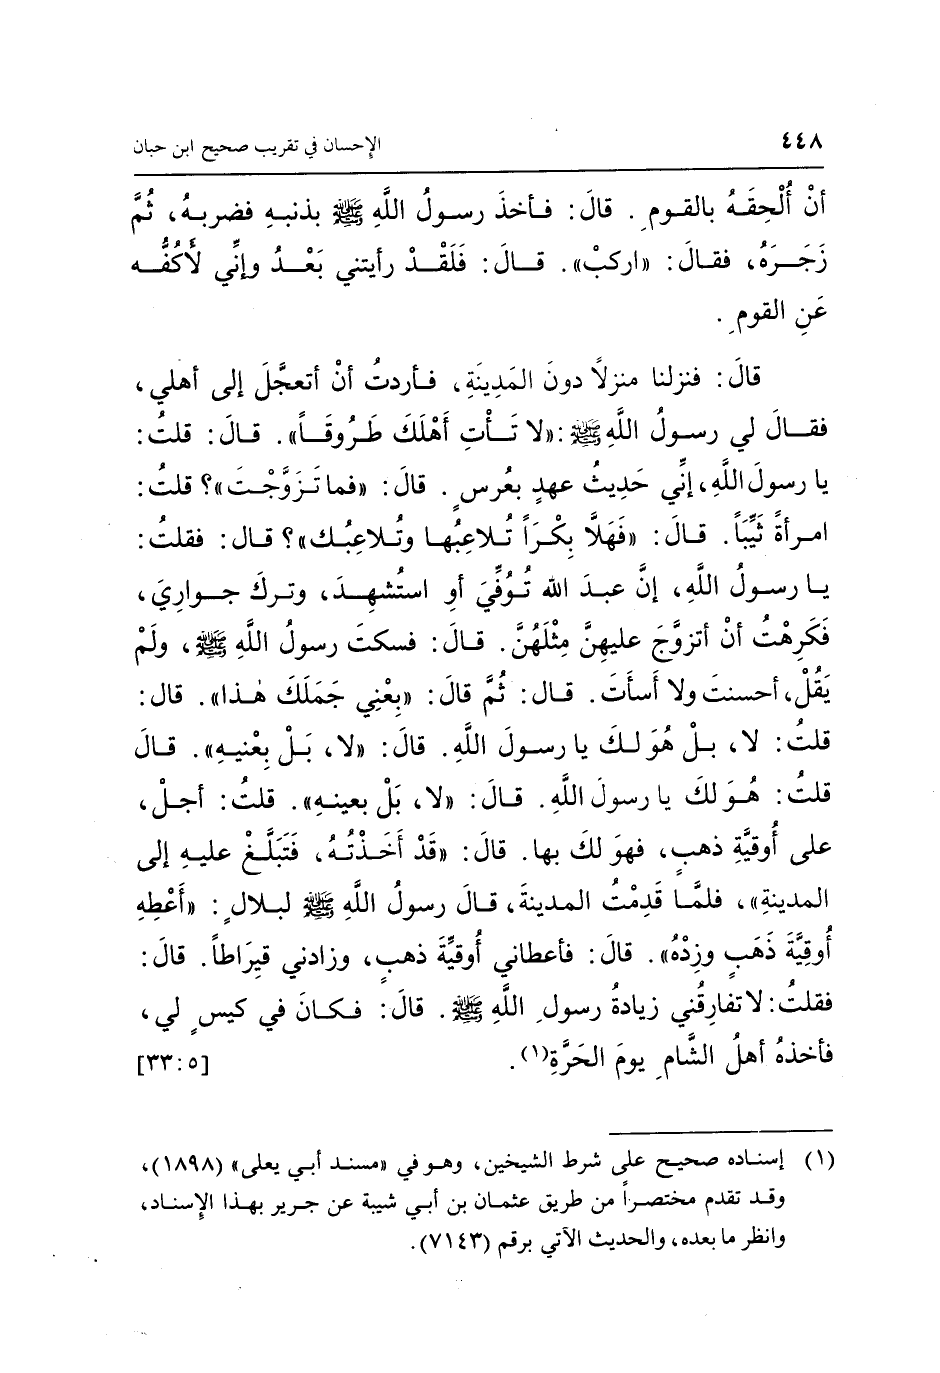 ٤٤٨ الإحسان في تقريب صحيح ابن حبان
أنْ أُلْحِقَهُ بالقومِ. قالَ: فأخذَ رسولُ اللَّهِ ﷺ بذنبهِ فضربهُ، ثُمَّ
زَجَرَهُ، فقالَ: «اركبْ». قالَ: فَلَقَدْ رأيتني بَعْدُ وإنِّي لأَكُفُّه
عَنِ القومِ.
قالَ: فنزلنا منزلاً دونَ المَدِينَةِ، فأردتُ أنْ أتعجَّلَ إلى أهلي،
فقالَ لي رسولُ اللَّهِ ﷺ: «لا تَأْتِ أَهْلَكَ طَرُوقَاً». قالَ: قلتُ:
يا رسولَ اللَّهِ، إنِّي حَدِيثُ عهدٍ بعُرسٍ. قالَ: «فما تَزَوَّجْتَ»؟ قلتُ:
امرأةً ثَيِّبَاً. قالَ: «فَهَلَّا بِكْرَاً تُلاعِبُها وتُلاعِبُك»؟ قال: فقلتُ:
يا رسولُ اللَّهِ، إنَّ عبدَ الله تُوُفِّيَ أو استُشهِدَ، وتركَ جواريَ،
فَكَرِهْتُ أنْ أتزوَّجَ عليهِنَّ مِثْلَهُنَّ. قالَ: فسكتَ رسولُ اللَّهِ ﷺ، ولَمْ
يَقُلْ، أحسنتَ ولا أَسأتَ. قال: ثُمَّ قالَ: «بِعْنِي جَمَلَكَ هٰذا». قال:
قلتُ: لا، بلْ هُوَ لكَ يا رسولَ اللَّهِ. قالَ: «لا، بَلْ بِعْنيهِ». قالَ
قلتُ: هُوَ لكَ يا رسولَ اللَّهِ. قالَ: «لا، بَلْ بعينهِ». قلتُ: أجلْ،
على أُوقيَّةِ ذهبٍ، فهوَ لكَ بها. قالَ: «قَدْ أَخَذْتُهُ، فَتَبَلَّغْ عليهِ إلى
المدينةِ»، فلمَّا قَدِمْتُ المدينةَ، قالَ رسولُ اللَّهِ ﷺ لبلالٍ: «أَعْطِهِ
أُوقِيَّةَ ذَهَبٍ وزِدْهُ». قالَ: فأعطاني أُوقيِّةَ ذهبٍ، وزادني قِيرَاطاً. قالَ:
فقلتُ: لا تفارِقُني زيادةُ رسولِ اللَّهِ ﷺ. قالَ: فكانَ في كيسٍ لي،
فأخذهُ أهلُ الشَّامِ يومَ الحَرَّةِ(١). [٥ : ٣٣]
(١) إسناده صحيح على شرط الشيخين، وهو في «مسند أبي يعلى» (١٨٩٨)،
وقد تقدم مختصراً من طريق عثمان بن أبي شيبة عن جرير بهذا الإسناد،
وانظر ما بعده، والحديث الآتي برقم (٧١٤٣).